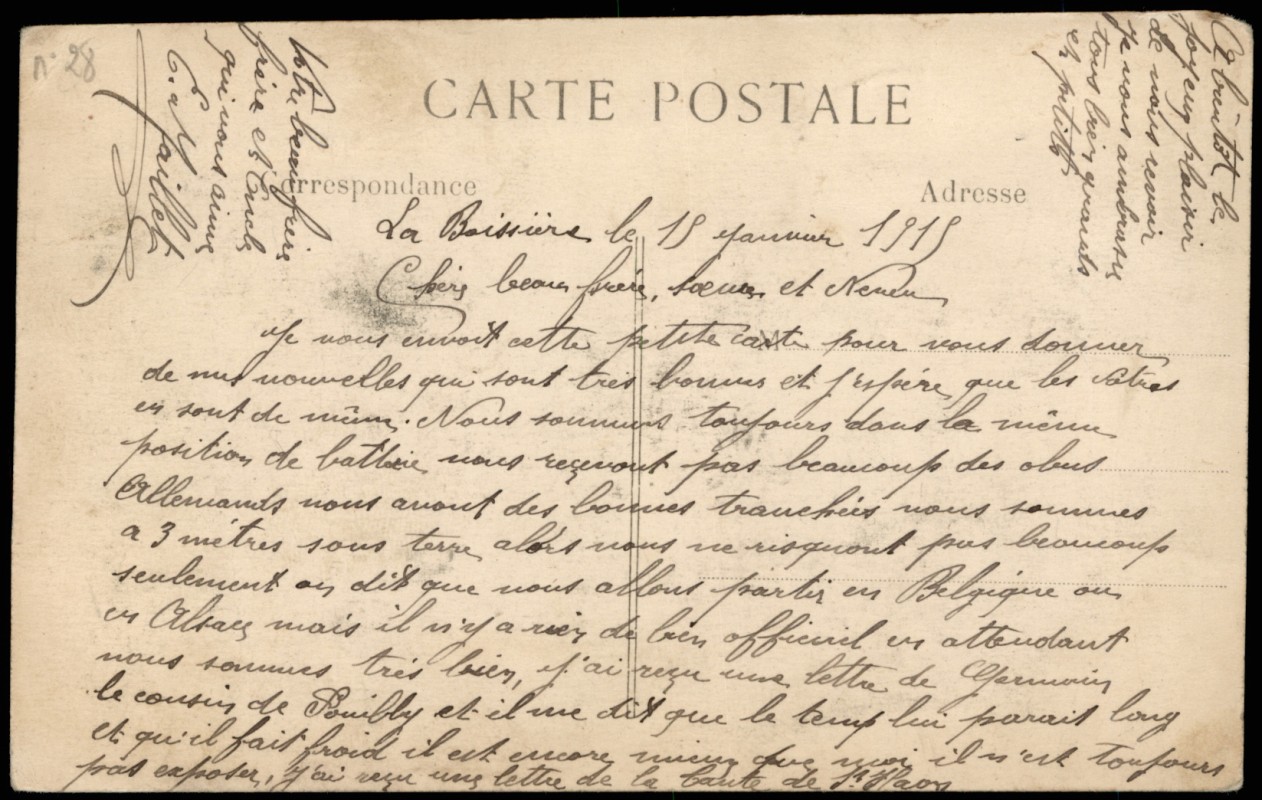 n° 28
CARTE POSTALE
Correspondance
Adresse
La Boissière le 15 janvier 1915
Chèrs beau frère, sœur et Neveu
Je vous envoit cette petite carte pour vous donner
de mes nouvelles qui sont très bonnes et j'espère que les vôtres
en sont de même. Nous sommes toujours dans la même
position de batterie nous reçevont pas beaucoup des obus
Allemands nous avont des bonnes tranchées nous sommes
a 3 mètres sous terre alors nous ne risquont pas beaucoup
seulement on dit que nous allons partir en Belgique ou
en Alsace mais il n'y a rien de bien officiel en attendant
nous sommes très bien, j'ai reçu une lettre de Germain
le cousin de Pouilly et il me dit que le temp lui parait long
et qu'il fait froid il est encore mieux que moi il n'est toujours
pas exposer, j'ai reçu une lettre de la tante de St Haon
A bientôt le
joyeux plaisir
de nous revoir
je vous embrasse
tous bien grands
et petits
Votre beau frère
frère et Oncle
qui vous aime
C. M. Gaillet